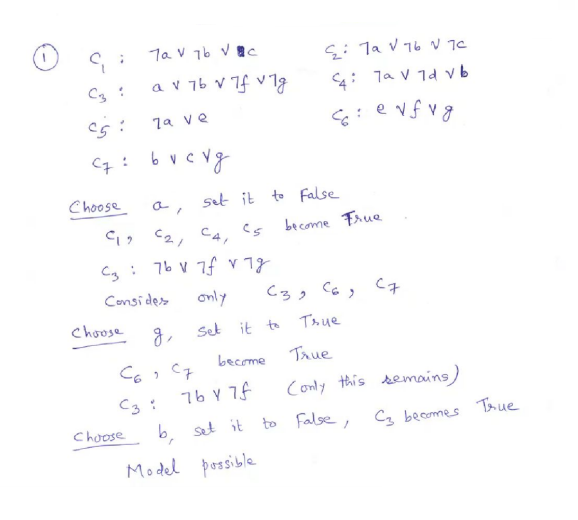 ① C₁ : ㄱa ∨ ㄱb ∨ c C₂ : ㄱa ∨ ㄱb ∨ ㄱc
C₃ : a ∨ ㄱb ∨ ㄱf ∨ ㄱg C₄ : ㄱa ∨ ㄱd ∨ b
C₅ : ㄱa ∨ e C₆ : e ∨ f ∨ g
C₇ : b ∨ c ∨ g
Choose a, set it to False
C₁, C₂, C₄, C₅ become True
C₃ : ㄱb ∨ ㄱf ∨ ㄱg
Consider only C₃, C₆, C₇
Choose g, set it to True
C₆, C₇ become True
C₃ : ㄱb ∨ ㄱf (only this remains)
Choose b, set it to False, C₃ becomes True
Model possible